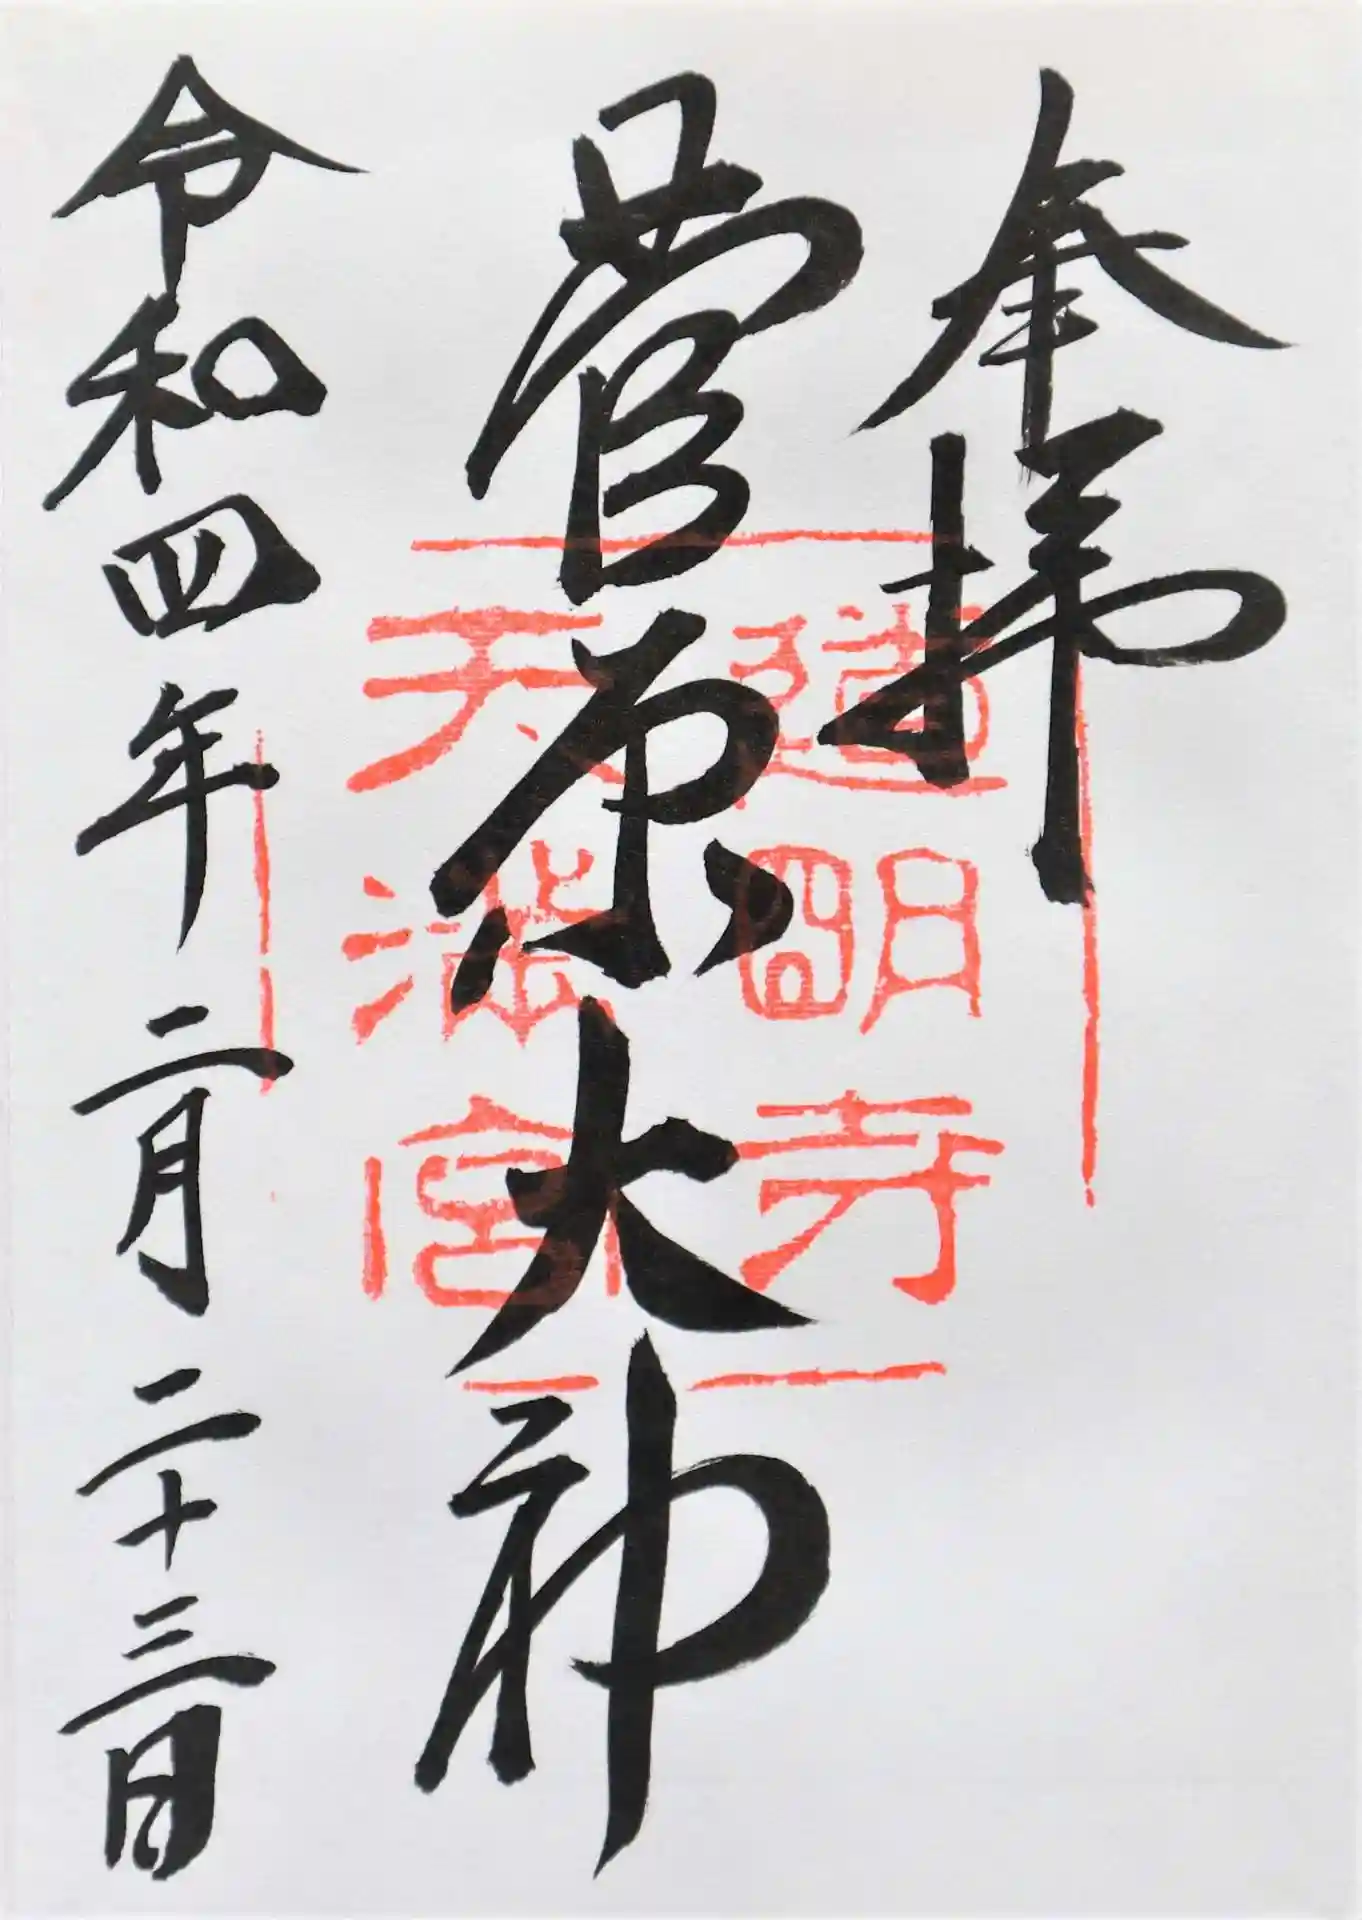 奉拝
菅原大神
道明寺
天満宮
令和四年二月二十三日